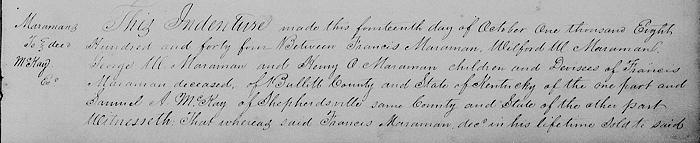 Maraman
To deed
McKay
This Indenture made this fourteenth day of October One thousand Eight
Hundred and forty four Between Francis Maraman, Welford W Maraman
George W Maraman and Henry C Maraman children and Devisees of Francis
Maraman deceased, of Bullitt County and State of Kentucky of the one part and
Samuel A. McKay of Shepherdsville same County and State of the other part
Witnesseth: That whereas said Francis Maraman, decd in his lifetime Sold to said